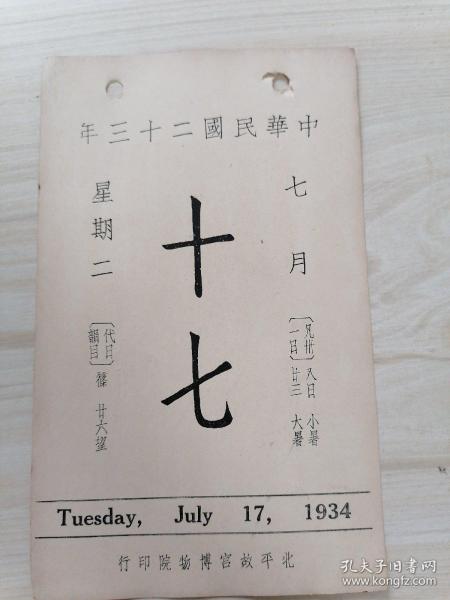 中華民國二十三年
七月
十七
星期二
〔凡卅一日〕
八日 小暑
廿三 大暑
〔代日韻目〕
篠 廿六望
Tuesday, July 17, 1934
北平故宮博物院印行
孔夫子旧书网